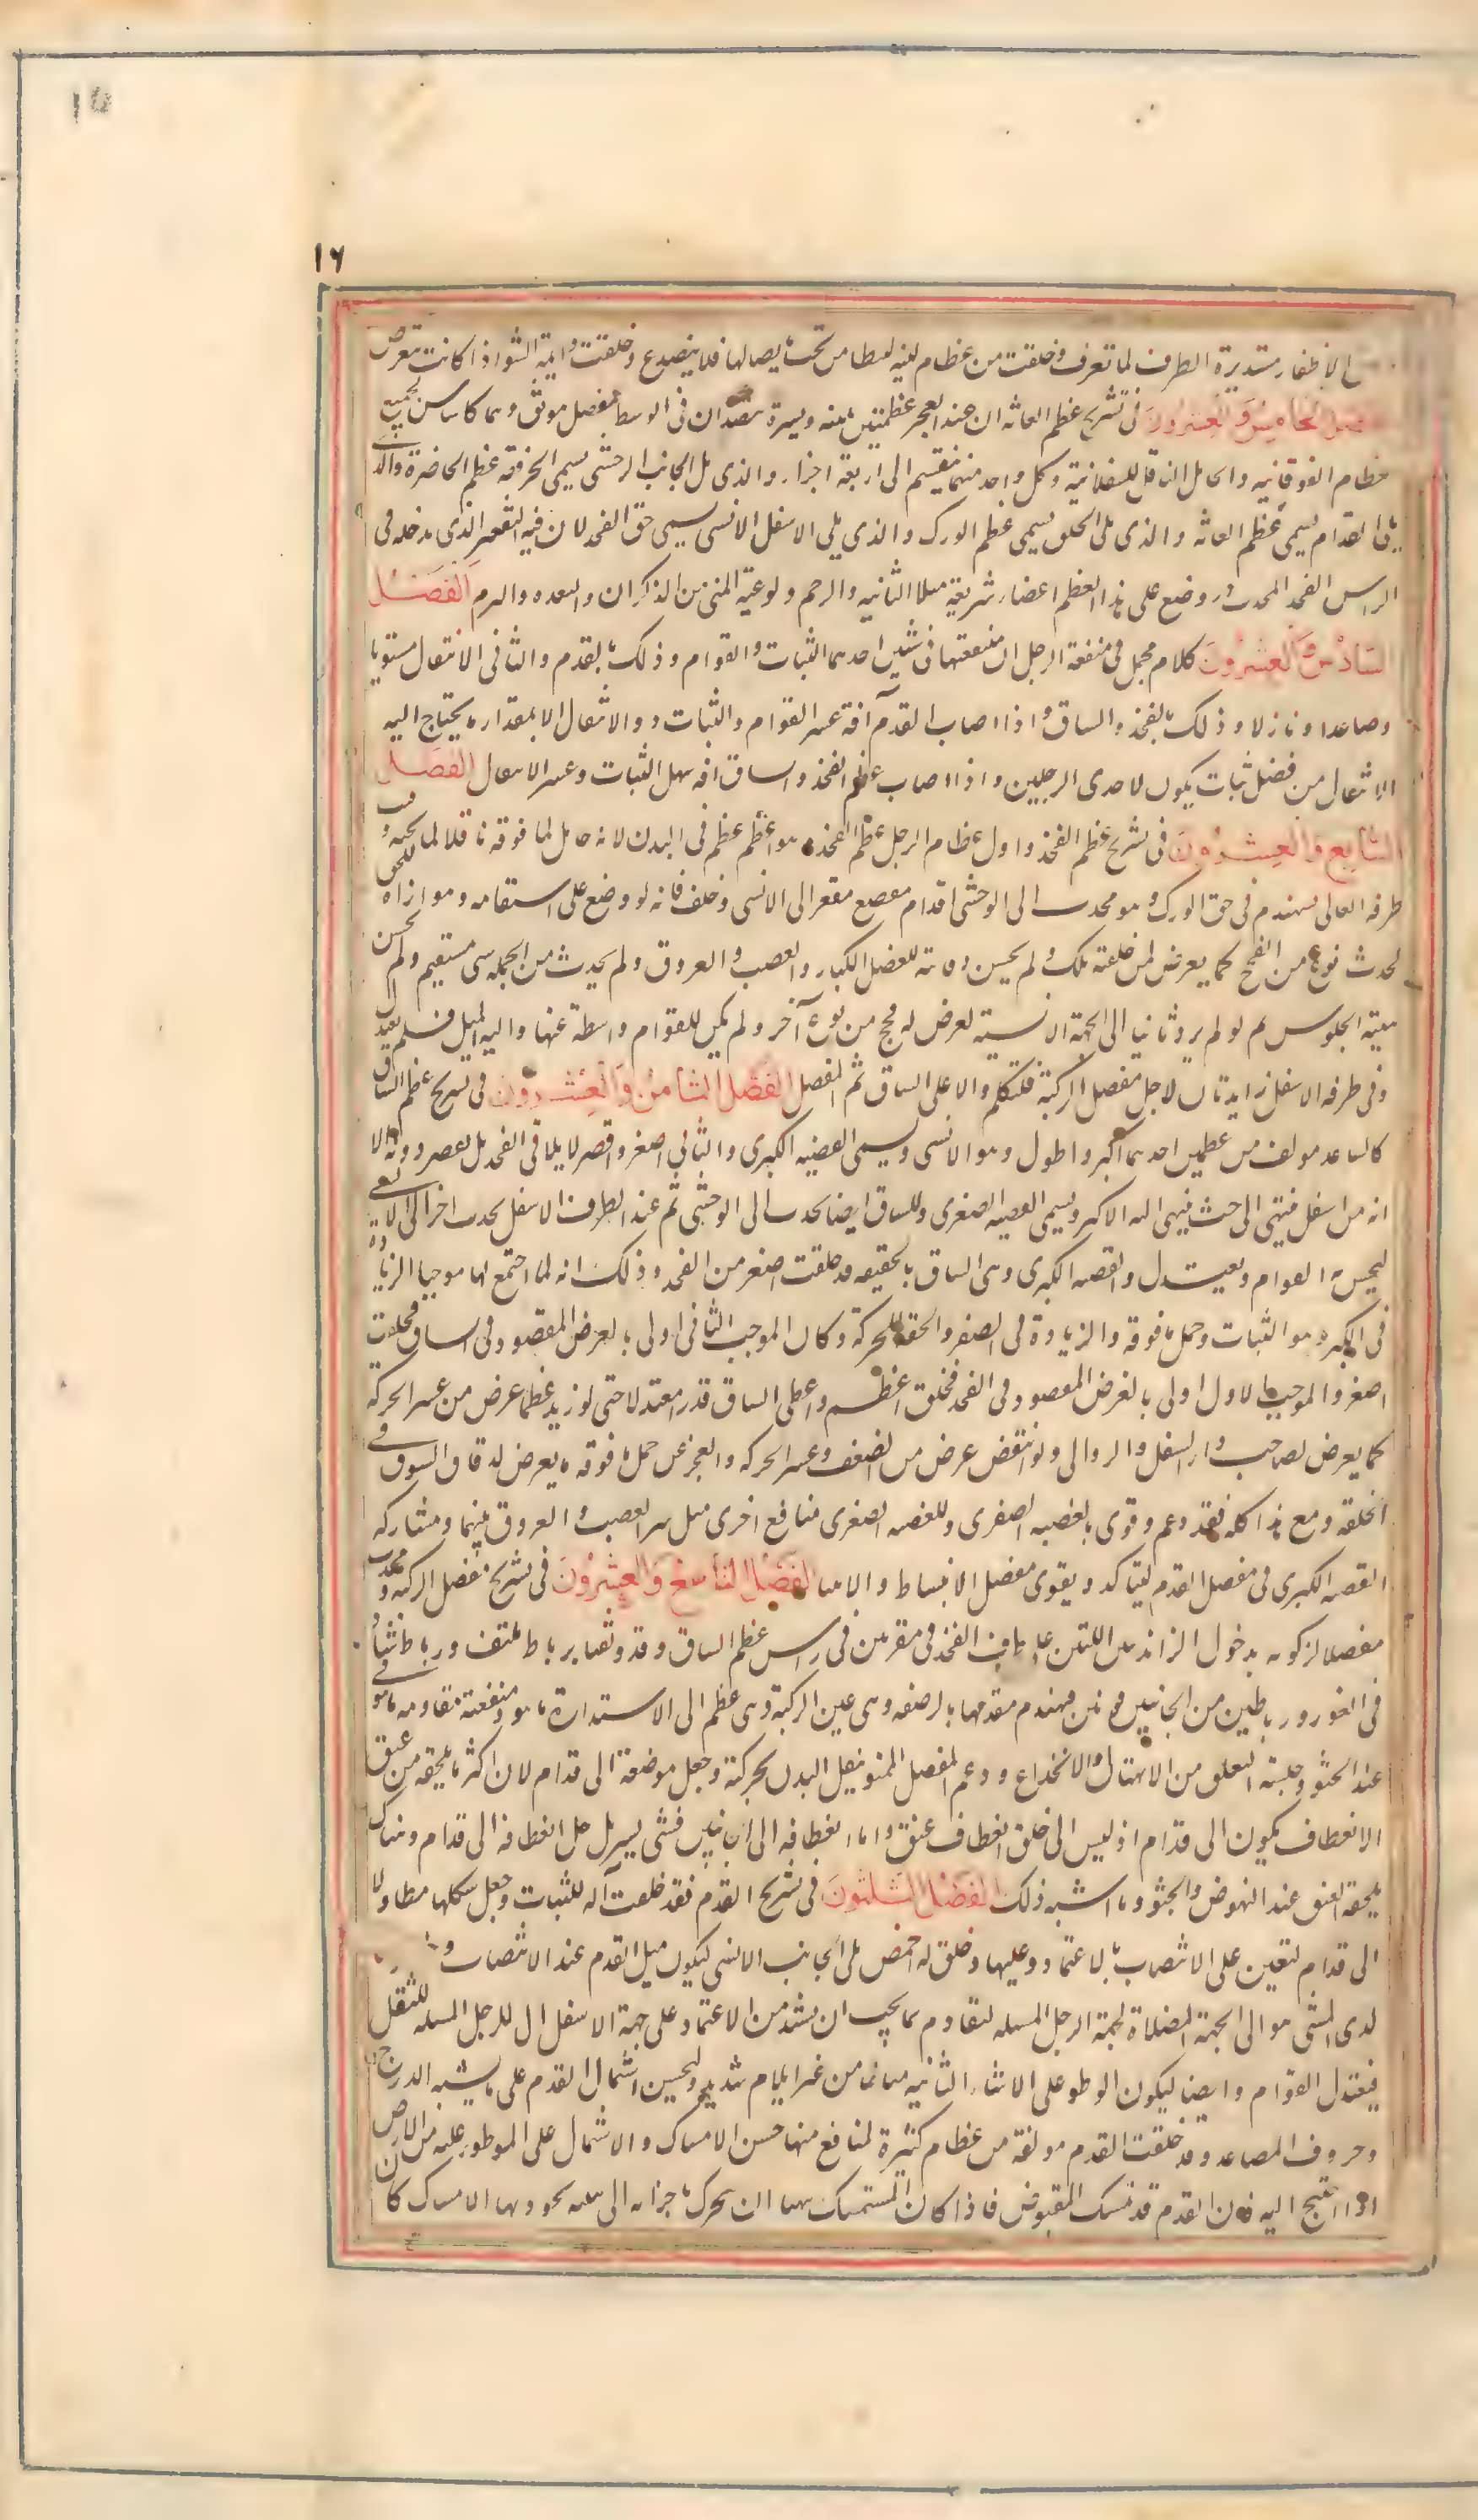 ١٥
١٦
الاظفار مستديرة الطرف لما تعرف وخلقت من عظام لينه ليتطامن تحت ما يصاكها فلا ينصدع وخلقت دايمة النشو اذا كانت تعرض
الفصل الخامس والعشرون فى تشريح عظم العانه ان عند العجز عظمتين يمنه ويسرة يتصلان فى الوسط بمفصل موثق وهما كالاساس لجميع
العظام الفوقانيه والحامل الناقل للسفلانية وكل واحد منهما ينقسم الى اربعة اجزاء والذى يلى الجانب الوحشى يسمى الحرقفة وعظم الخاصرة والذى
يلى القدام يسمى عظم العانه والذى يلى الخلق يسمى عظم الورك والذى يلى الاسفل الانسى يسمى حق الفخذ لان فيه التقعير الذى يدخله فى
الراس الفخذ المحدب وقد وضع على هذا العظم اعضاء شريفة مثل المثانيه والرحم ولوعية المنى من الذكران والمقعده والسرم الفصل
السادس والعشرون كلام مجمل فى منفعة الرجل ان منفعتها فى شئين احدهما الثبات والقوام وذلك بالقدم والثانى الانتقال مستويا
وصاعدا ونازلا وذلك بالفخذ والساق واذا اصاب القدم آفة عسر القوام والثبات دون الانتقال الا بمقدار ما يحتاج اليه
الانتقال من فضل ثبات يكون لاحدى الرجلين واذا اصاب عظم الفخذ والساق افه سهل الثبات وعسر الانتقال الفصل
السابع والعشرون فى تشريح عظم الفخذ واول عظام الرجل عظم الفخذ هو اعظم عظم فى البدن لانه حامل لما فوقه ناقلا لما تحته وقبب
طرفه العالى ليتهندم فى حق الورك وهو محدب الى الوحشى اقدام مقصع مقعر الى الانسى وخلف فانه لو وضع على استقامه وموازاه للحق
لحدث نوع من الفحج كما يعرض لمن خلقته تلك ولم يحسن وقايته للعضل الكبار والعصب والعروق ولم يحدث من الجمله شى مستقيم ولم يحسن
هيئة الجلوس ثم لو لم يرد ثانيا الى الجهة الانسية لعرض له فحج من نوع آخر ولم يكن للقوام واسطة عنها واليه الميل فلم يعتدل
وفى طرفه الاسفل زايدتان لاجل مفصل الركبة فلنتكلم والا على الساق ثم المفصل الفصل الثامن والعشرون فى تشريح عظم الساق
كالساعد مولف من عظمين احدهما اكبر واطول وهو الانسى ويسمى القصبه الكبرى والثانى اصغر واقصر لا يلاقى الفخذ بل يقصر دونه الا
انه من اسفل ينتهى الى حيث ينتهى اليه الاكبر ويسمى القصبه الصغرى وللساق ايضا تحدب الى الوحشى ثم عند الطرف الاسفل تحدب اخر الى الانسى
ليحسن به القوام ويعتدل والقصبه الكبرى وهى الساق بالحقيقه قد خلقت اصغر من الفخذ وذلك انه لما اجتمع لها موجبا الزيادة
فى الكبر وهو الثبات وحمل ما فوقه والزيادة فى الصغر والخفة للحركة وكان الموجب الثانى اولى بالغرض المقصود فى الساق فخلقت
اصغر والموجب الاول اولى بالغرض المقصود فى الفخذ فخلق اعظم واعطى الساق قدرا معتدلا حتى لو زيد عظما عرض من عسر الحركة
كما يعرض لصاحب داء الفيل والدوالى ولو انتقض عرض من الضعف وعسر الحركه والعجز عن حمل ما فوقه ما يعرض لدقاق السوق فى
الخلقه ومع هذا كله فقد دعم وقوى بالقصبه الصغرى وللقصبه الصغرى منافع اخرى مثل ستر العصب والعروق بينهما ومشاركه
القصبه الكبرى فى مفصل القدم ليتاكد ويقوى مفصل الانبساط والانثنا الفصل التاسع والعشرون فى تشريح مفصل الركبة ويحدث
مفصل الركبه بدخول الزائدتين اللتين على طرف الفخذ فى نقرتين فى راس عظم الساق وقد وثقا برباط ملتف ورباط شاد
فى الغور ورباطين من الجانبين قويين فهندم مقدمها بالرضفه وهى عين الركبة وهى عظم الى الاستدارة ما هو ومنفعته مقاومه ما هو
عند الجثو وجلسة التعلق من الانهتاك والانخلاع ودعم المفصل الممنو بنقل البدن بحركته وجعل موضعه الى قدام لان اكثر ما يلحقه من عنق
الانعطاف يكون الى قدام اذ ليس الى خلف انعطاف عنق واما انعطافه الى الجانبين فشى يسير بل جل انعطافه الى قدام وهناك
يلحقه العنق عند النهوض والجثو وما اشبه ذلك الفصل الثلثون فى تشريح القدم فقد خلقت آلة للثبات وجعل شكلها مطاولا
الى قدام لتعين على الانتصاب بالاعتماد عليها وخلق له اخمص يلى الجانب الانسى ليكون ميل القدم عند الانتصاب و
لدى المشى هو الى الجهة المضادة لجهة الرجل المشيله لتقاوم ما يجب ان يشتد من الاعتماد على جهة الاسفل ال للرجل المشيله للنقل
فيعتدل القوام وايضا ليكون الوطو على الاشياء الثانيه متاتيا من غير ايلام شديد وليحسن اشتمال القدم على ما يشبه الدرج
وحروف المصاعد وقد خلقت القدم مولفة من عظام كثيرة لمنافع منها حسن الامساك والاشتمال على الموطوء عليه من الارض
اذا احتيج اليه فان القدم قد تمسك المقبوض فاذا كان المستمسك يتهيا ان يتحرك باجزائه الى هيئه يجود بها الامساك كان